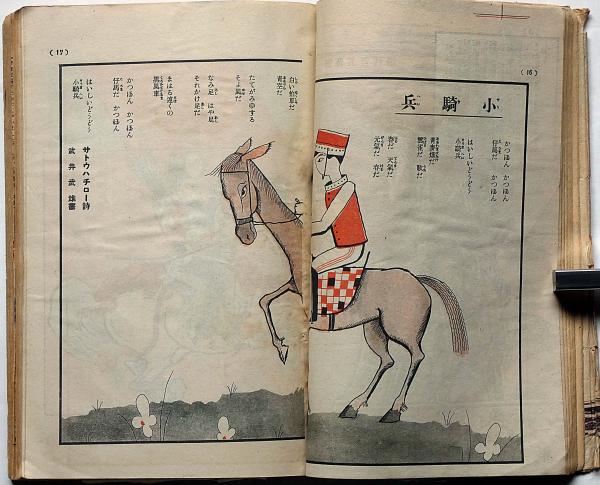 (16)
小騎兵
かつぽん かつぽん
仔馬だ かつぽん
はいしいどうどう
小騎兵
青麥畑だ
雲雀だ 歌だ
春だ 天氣だ
元氣だ
(17)
白い柏草だ
青空だ
たてがみゆする
そよ風だ
なみ足 はや足
それかけ足だ
まはる遠くの
黒風車
かつぽん かつぽん
仔馬だ かつぽん
はいしいどうどう
小騎兵
サトウハチロー詩
武井武雄畫